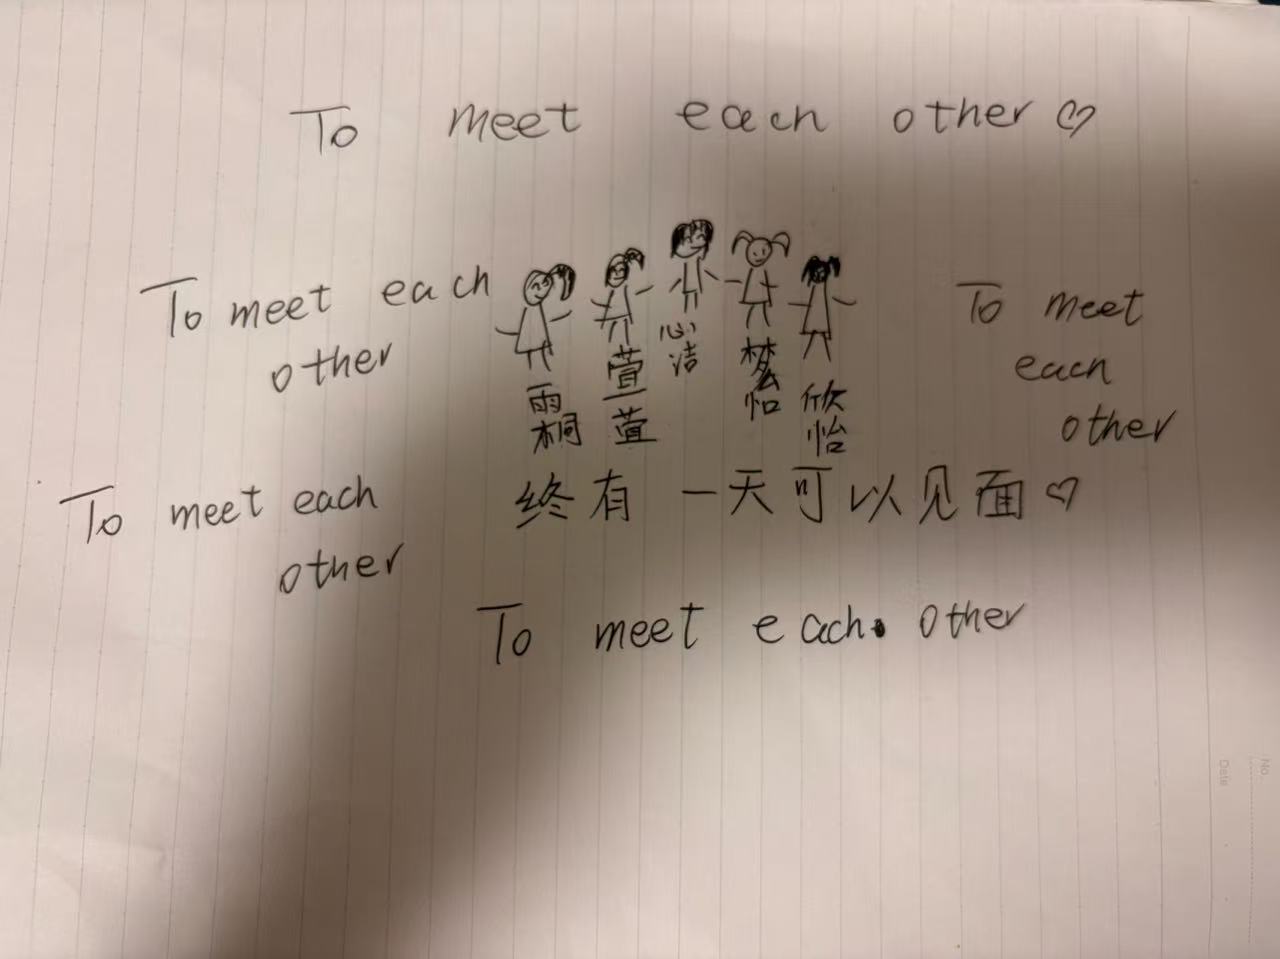 To meet each other♡
To meet each
other
To meet
each
other
雨桐
萱萱
心洁
梦怡
欣怡
To meet each
other
终有一天可以见面♡
To meet each other
No.
Date